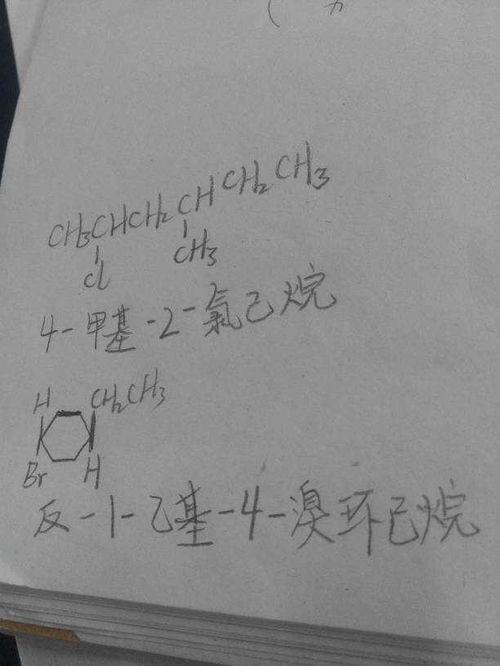 CH3CHCH2CHCH2CH3
Cl CH3
4-甲基-2-氯己烷
H CH2CH3
Br H
反-1-乙基-4-溴环己烷